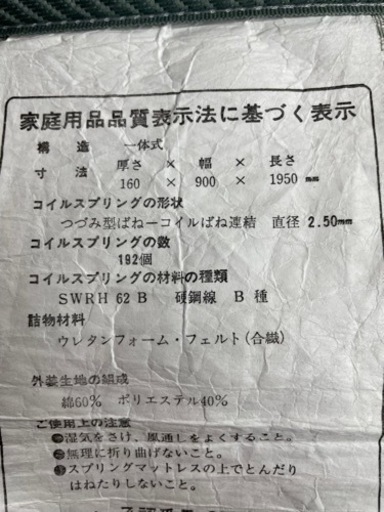 家庭用品品質表示法に基づく表示
構造 一体式
寸法 厚さ × 幅 × 長さ
160 × 900 × 1950 mm
コイルスプリングの形状
つづみ型ばねーコイルばね連結 直径 2.50mm
コイルスプリングの数
192個
コイルスプリングの材料の種類
SWRH 62 B 硬鋼線 B 種
詰物材料
ウレタンフォーム・フェルト(合繊)
外装生地の組成
綿60% ポリエステル40%
ご使用上の注意
●湿気をさけ、風通しをよくすること。
●無理に折り曲げないこと。
●スプリングマットレスの上でとんだり
はねたりしないこと。